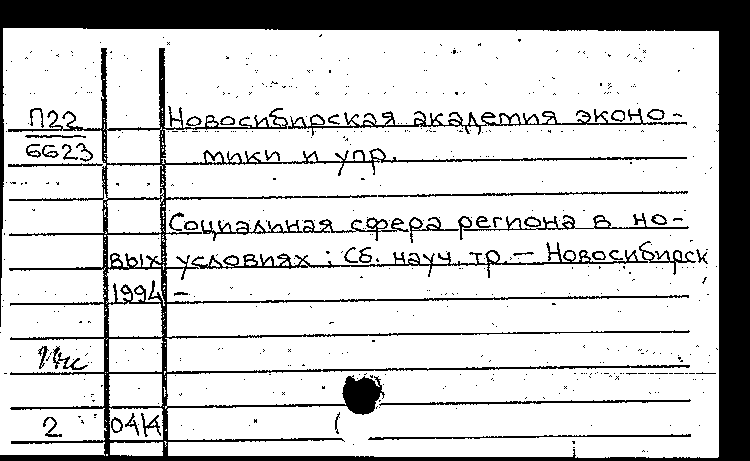 П22 Новосибирская академия эконо-
6623 мики и упр.
Социалиная сфера региона в но-
вых условиях : Сб. науч. тр. — Новосибирск,
1994 —
2 04/4